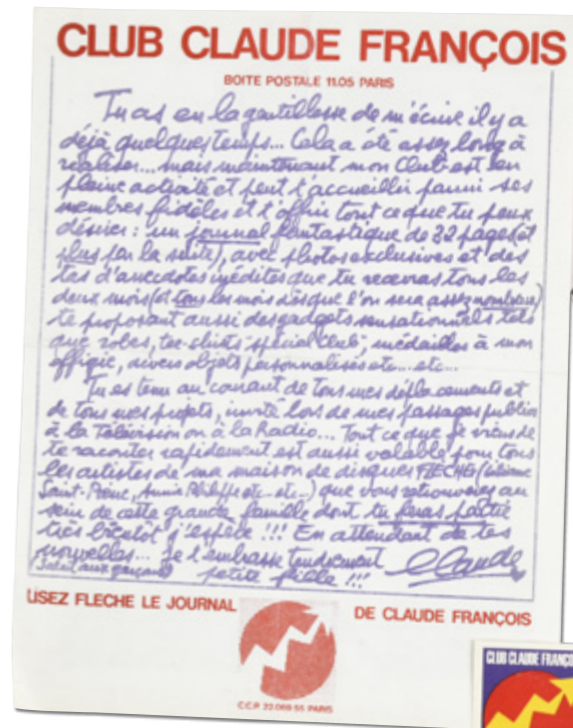 CLUB CLAUDE FRANÇOIS
BOITE POSTALE 11.05 PARIS
Tu as eu la gentillesse de m'écrire il y a
déjà quelques temps... Cela a été assez long à
réaliser... mais maintenant mon Club est en
pleine activité et peut t'accueillir parmi ses
membres fidèles et t'offrir tout ce que tu peux
désirer : un journal fantastique de 32 pages (et
plus par la suite), avec photos exclusives et des
tas d'anecdotes inédites que tu recevras tous les
deux mois (et tous les mois dès que l'on sera assez nombreux)
te proposant aussi des gadgets sensationnels tels
que robes, tee-shirts "spécial Club", médailles à mon
effigie, divers objets personnalisés etc... etc...
Tu es tenu au courant de tous mes déplacements et
de tous mes projets, invité lors de mes passages publics
à la Télévision ou à la Radio... Tout ce que je viens de
te raconter rapidement est aussi valable pour tous
les artistes de ma maison de disques FLECHE (
Saint-Preux, Annie Philippe etc... etc...) que vous retrouverez au
sein de cette grande famille dont tu feras partie
très bientôt j'espère !!! En attendant de tes
nouvelles... je t'embrasse tendrement Claude
(salut aux garçons) petite fille !!!
LISEZ FLECHE LE JOURNAL DE CLAUDE FRANÇOIS
C.C.P. 22 069 55 PARIS
CLUB CLAUDE FRANÇO